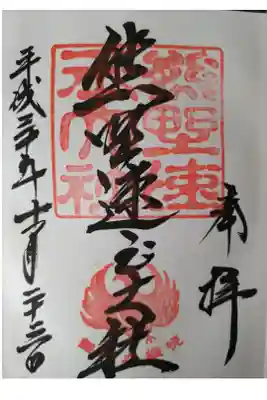 奉拝
熊野速玉大社
熊野速
玉大社
平成二十九年十一月二十三日